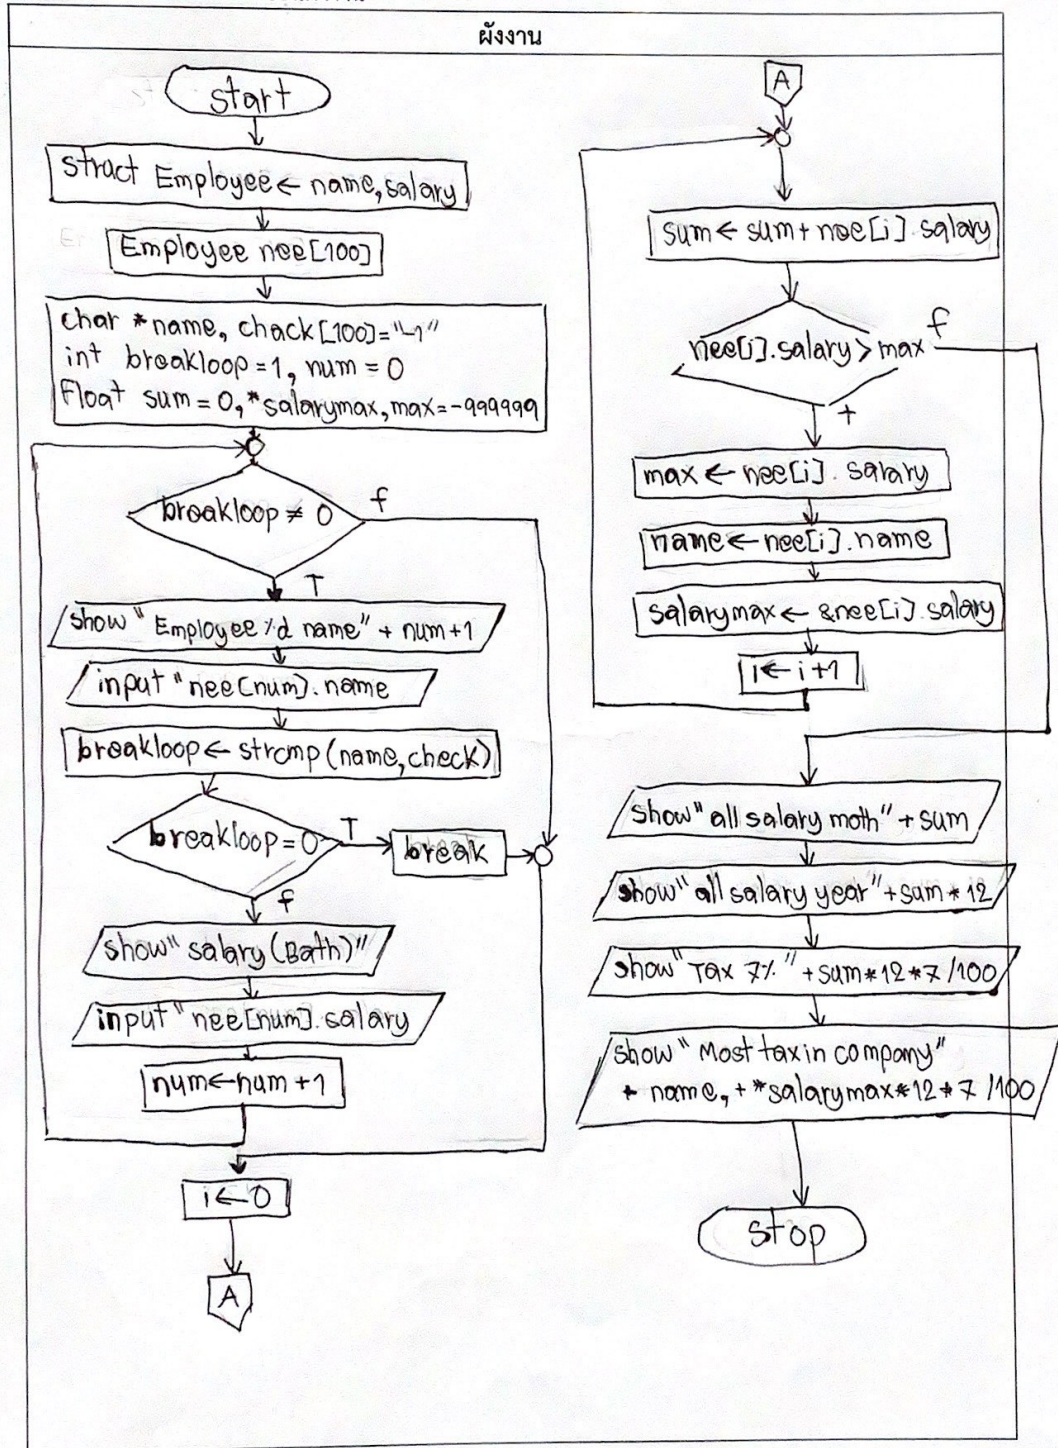 ผังงาน
start
struct Employee ← name, salary
Employee nee[100]
char *name, chack[100]="-1"
int breakloop=1, num = 0
float sum = 0, *salarymax, max=-999999
breakloop ≠ 0
f
T
show " Employee %d name" + num+1
input "nee[num].name
breakloop ← strcmp(name, check)
breakloop = 0
T
break
f
show" salary (Bath)"
input "nee[num].salary
num ← num + 1
i ← 0
A
A
sum ← sum + nee[i].salary
nee[i].salary > max
f
+
max ← nee[i].salary
name ← nee[i].name
salarymax ← &nee[i].salary
i ← i+1
show" all salary moth" + sum
show" all salary year" + sum * 12
show "Tax 7% " + sum*12*7/100
show " Most tax in company"
+ name, + *salarymax*12*7/100
stop